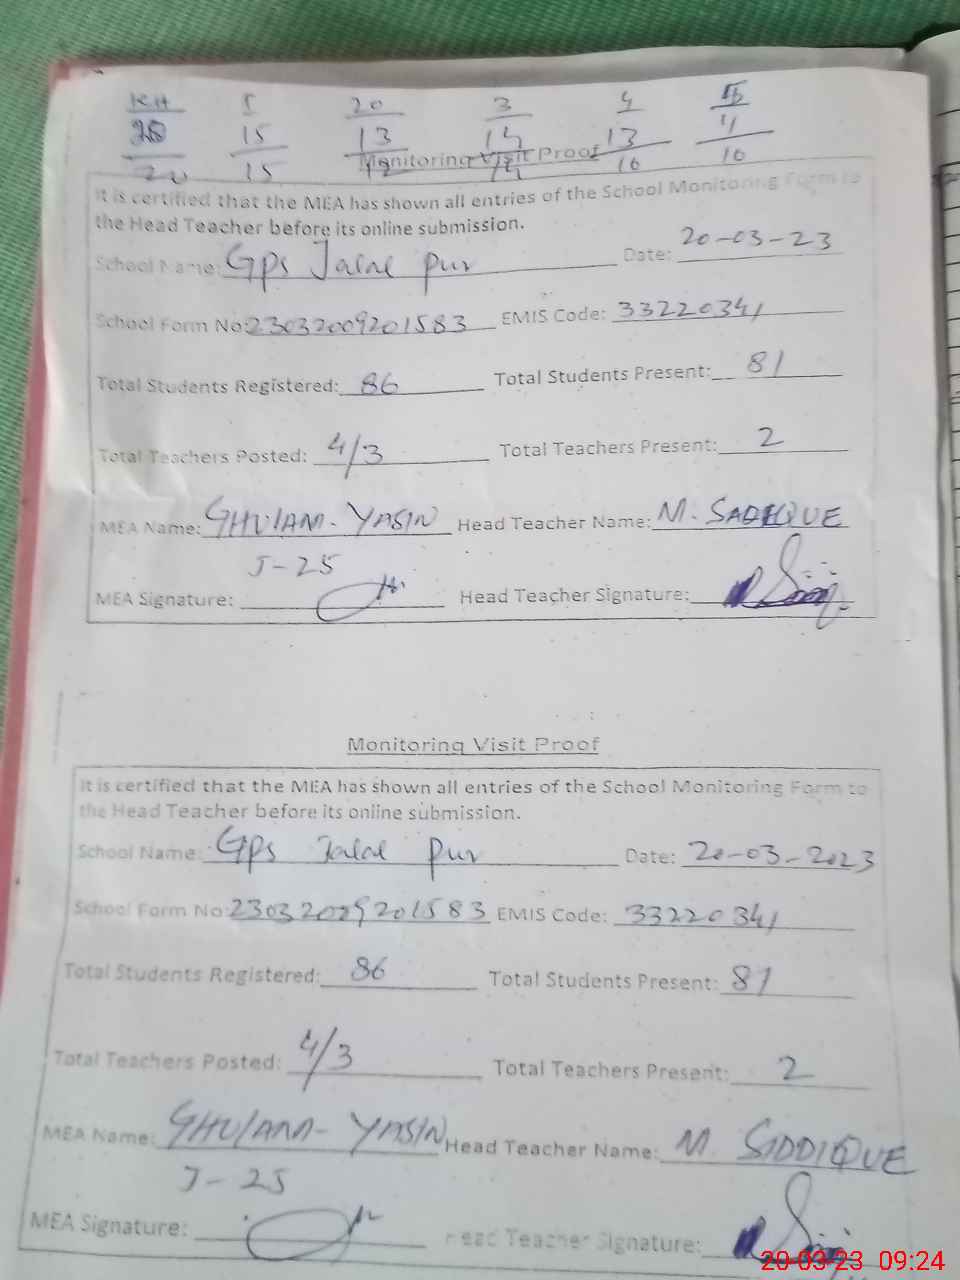 K.H 1 20 3 4 5
20 15 13 14 13 11
20 15 12 14 10 10
Monitoring Visit Proof
It is certified that the MEA has shown all entries of the School Monitoring Form to
the Head Teacher before its online submission.
School Name: Gps Jalal pur Date: 20-03-23
School Form No: 23032009201583 EMIS Code: 33220341
Total Students Registered: 86 Total Students Present: 81
Total Teachers Posted: 4/3 Total Teachers Present: 2
MEA Name: GHULAM-YASIN Head Teacher Name: M. SADEQUE
J-25
MEA Signature: Head Teacher Signature:
Monitoring Visit Proof
It is certified that the MEA has shown all entries of the School Monitoring Form to
the Head Teacher before its online submission.
School Name: Gps Jalal pur Date: 20-03-2023
School Form No: 23032009201583 EMIS Code: 33220341
Total Students Registered: 86 Total Students Present: 81
Total Teachers Posted: 4/3 Total Teachers Present: 2
MEA Name: GHULAM-YASIN Head Teacher Name: M. SIDDIQUE
J-25
MEA Signature: Head Teacher Signature:
20-03-23 09:24